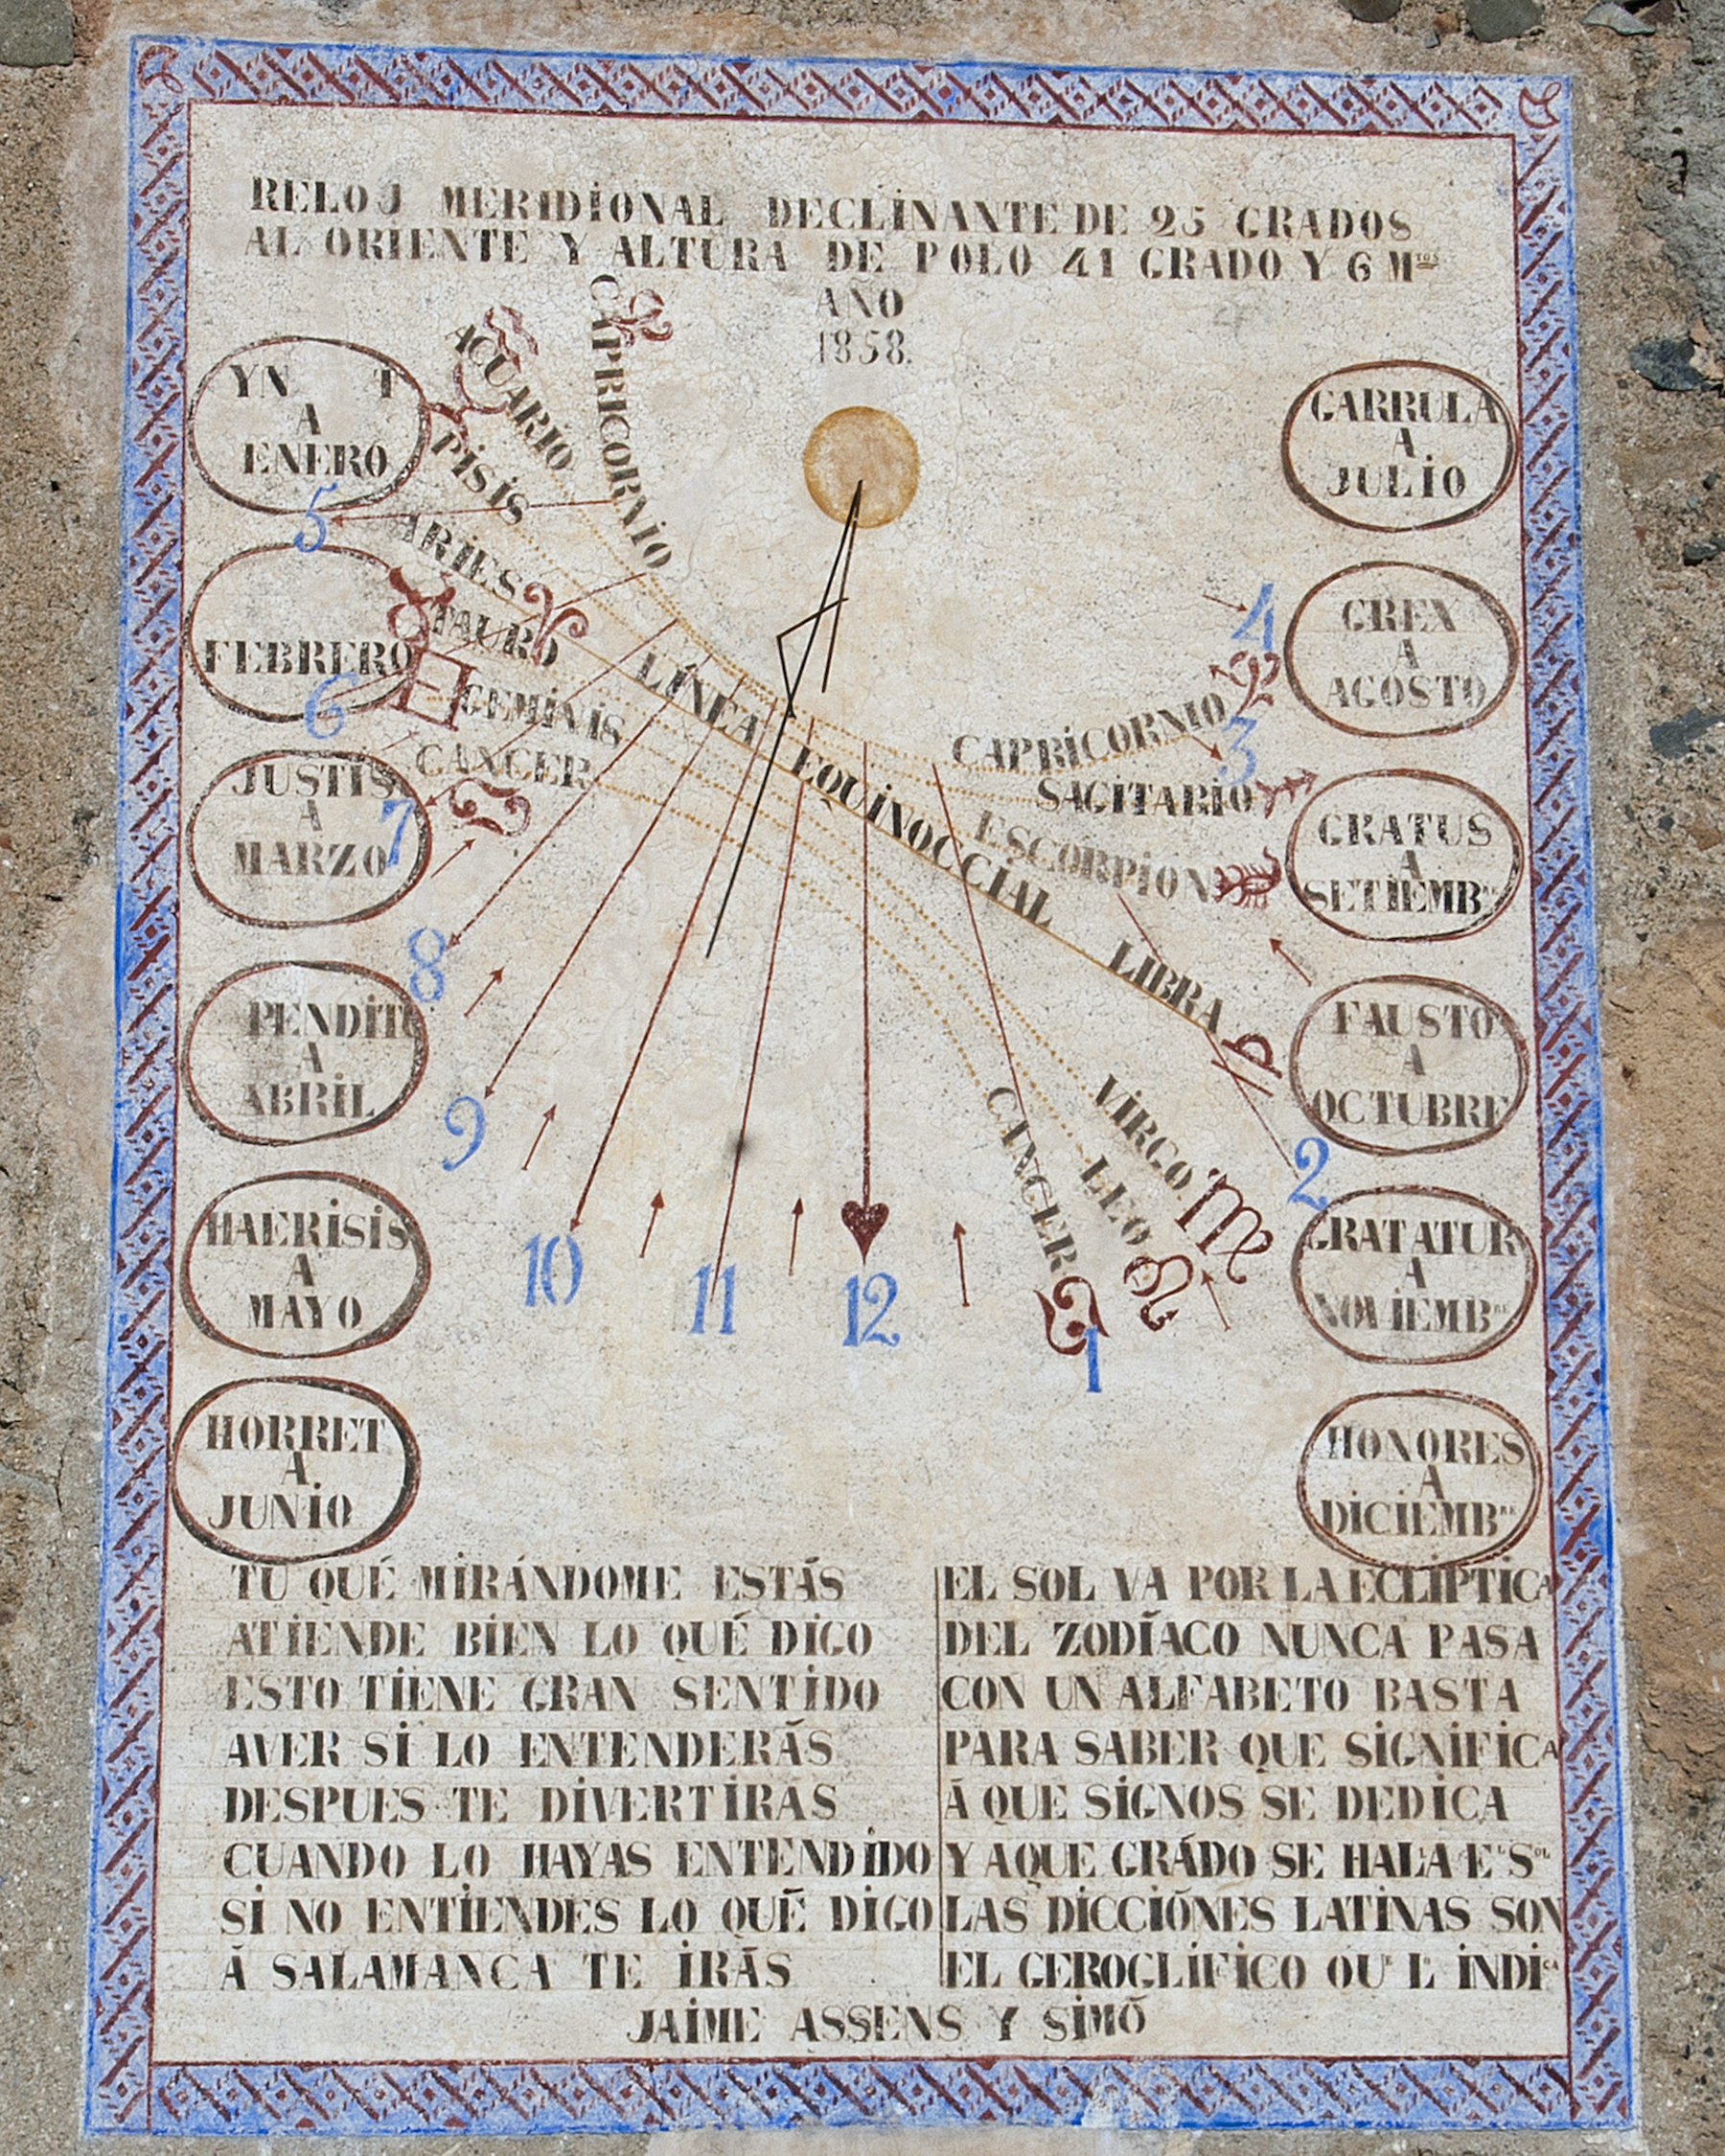 RELOJ MERIDIONAL DECLINANTE DE 25 GRADOS
AL ORIENTE Y ALTURA DE POLO 41 GRADO Y 6 Mᵗᵒˢ
AÑO
1858.
CAPRICORNIO
ACUARIO
PISIS
ARIES
TAURO
GEMINIS
CANCER
LÍNEA EQUINOCCIAL
CAPRICORNIO
SAGITARIO
ESCORPION
LIBRA
VIRGO
LEO
CANCER
YN T
A
ENERO
FEBRERO
JUSTIS
A
MARZO
PENDIT
A
ABRIL
HAERISIS
A
MAYO
HORRET
A
JUNIO
GARRULA
A
JULIO
GREX
A
AGOSTO
GRATUS
A
SETIEMB
FAUSTO
A
OCTUBRE
GRATATUR
A
NOVIEMBᴿᴱ
HONORES
A
DICIEMBᴿᴱ
5
6
7
8
9
10
11
12
1
2
3
4
TU QUÉ MIRÁNDOME ESTÁS
ATIENDE BIEN LO QUÉ DIGO
ESTO TIENE GRAN SENTIDO
AVER SI LO ENTENDERÁS
DESPUES TE DIVERTIRAS
CUANDO LO HAYAS ENTENDIDO
SI NO ENTIENDES LO QUÉ DIGO
Á SALAMANCA TE IRÁS
EL SOL VA POR LA ECLÍPTICA
DEL ZODÍACO NUNCA PASA
CON UN ALFABETO BASTA
PARA SABER QUE SIGNIFICA
Á QUE SIGNOS SE DEDICA
Y AQUE GRÁDO SE HALA Eᴸ Sᴼᴸ
LAS DICCIÓNES LATINAS SON
EL GEROGLÍFICO QUᴱ L INDIᶜᴬ
JAIME ASSENS Y SIMÓ